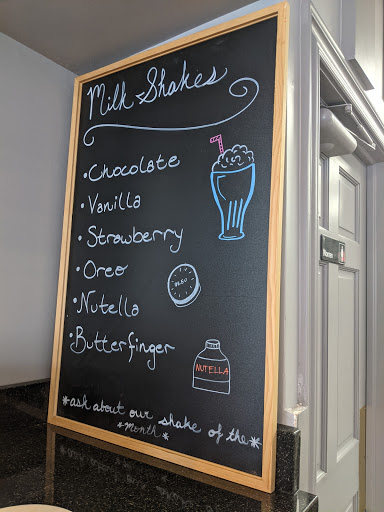 Milk Shakes
• Chocolate
• Vanilla
• Strawberry
• Oreo
OREO
• Nutella
• Butterfinger
NUTELLA
*ask about our shake of the*
*Month*